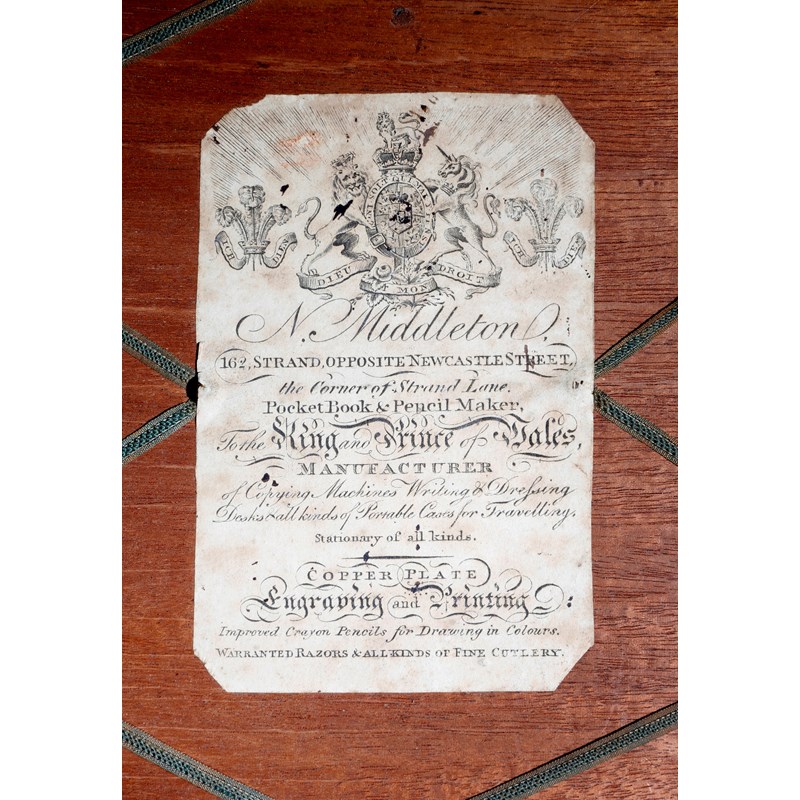 HONI SOIT QUI MAL Y PENSE
ICH DIEN
ICH DIEN
DIEU ET MON DROIT
N. Middleton
162, STRAND, OPPOSITE NEWCASTLE STREET,
the Corner of Strand Lane,
Pocket Book & Pencil Maker,
To the King and Prince of Wales,
MANUFACTURER
of Copying Machines Writing & Dressing
Desks & all kinds of Portable Cases for Travelling,
Stationary of all kinds.
COPPER PLATE
Engraving and Printing:
Improved Crayon Pencils for Drawing in Colours.
WARRANTED RAZORS & ALL KINDS OF FINE CUTLERY.